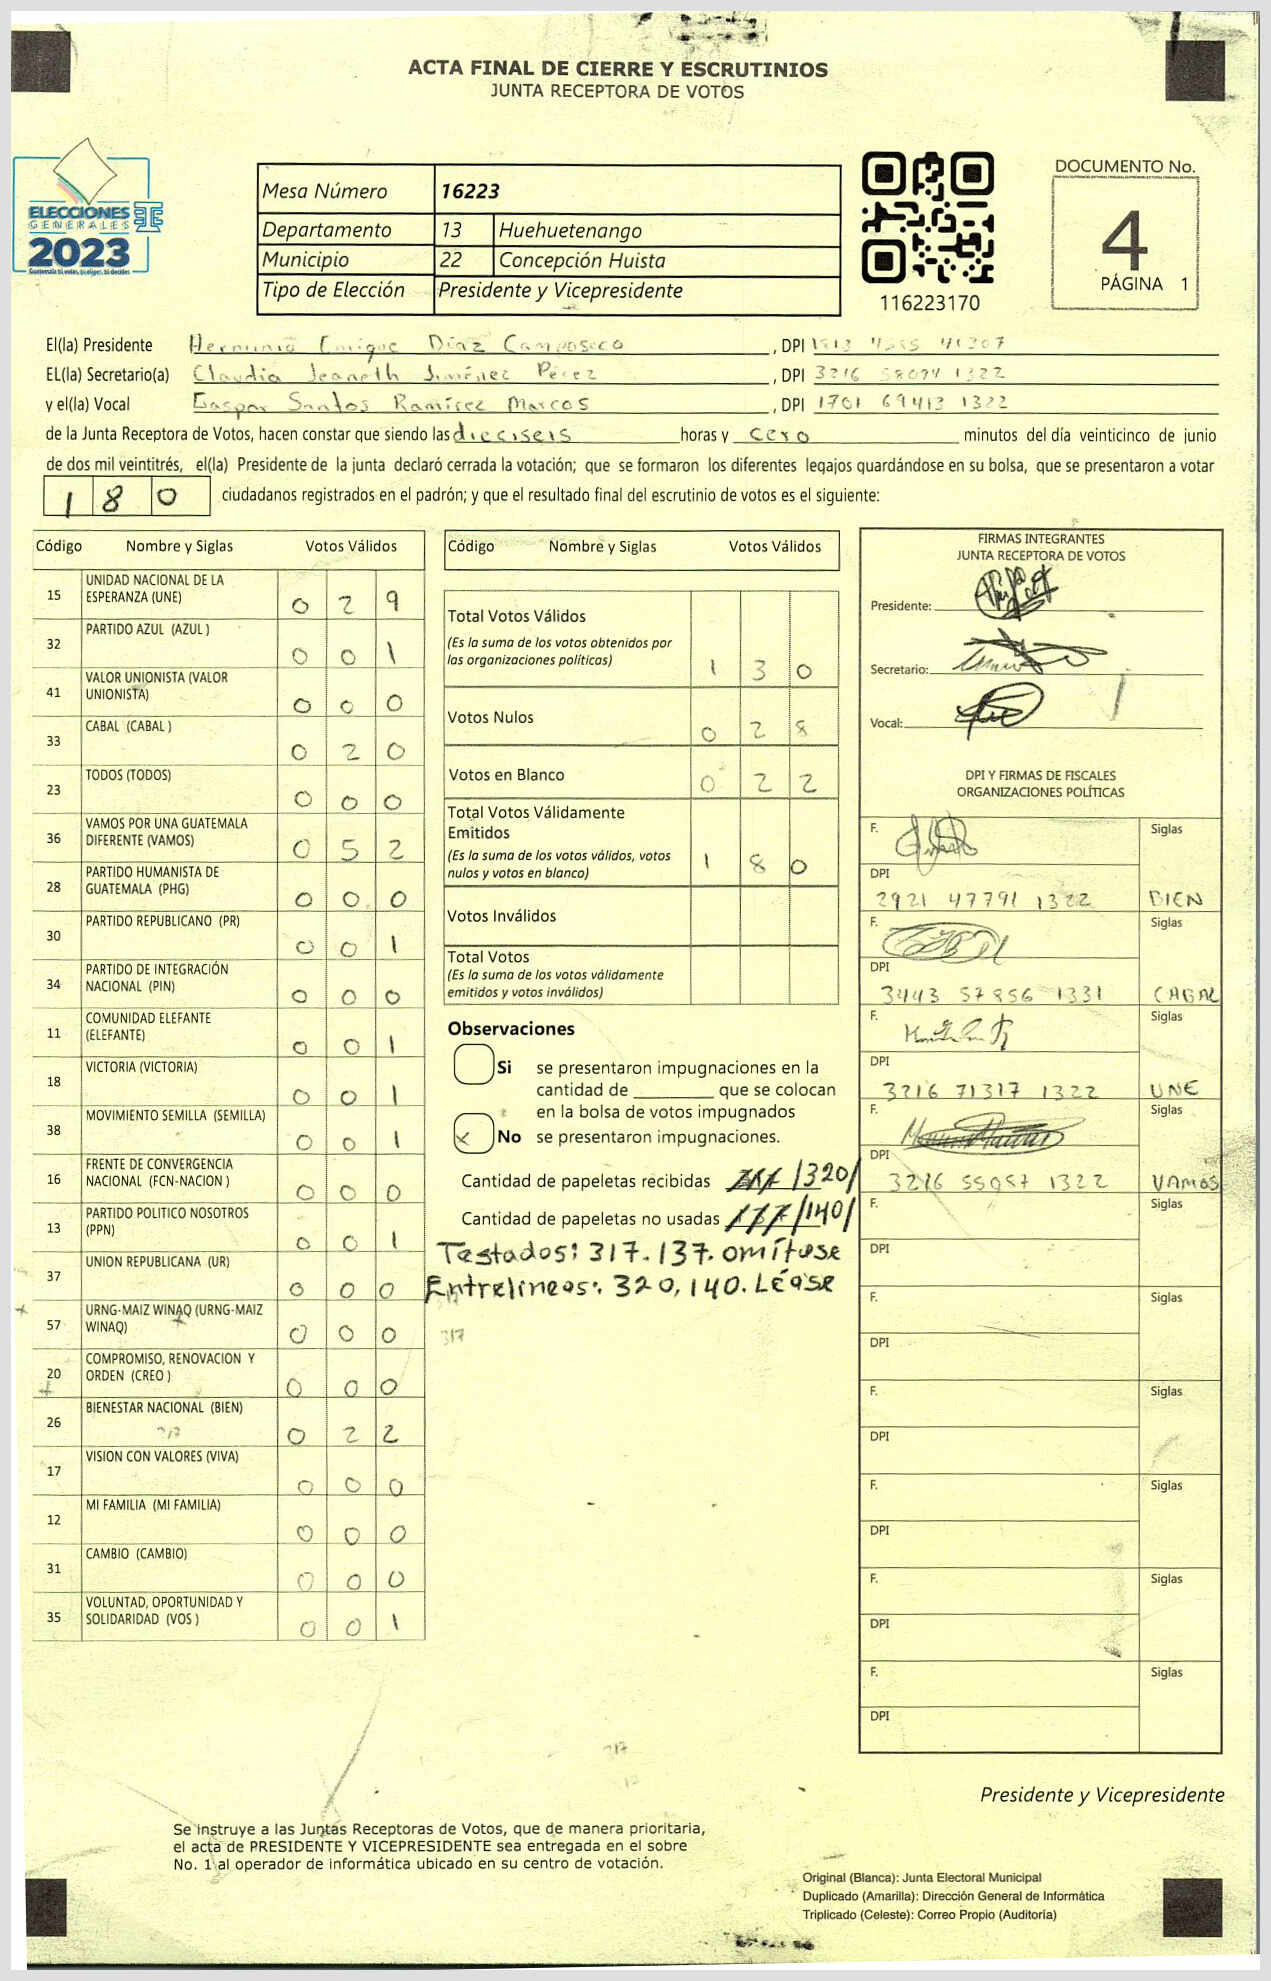 ACTA FINAL DE CIERRE Y ESCRUTINIOS
JUNTA RECEPTORA DE VOTOS
ELECCIONES
GENERALES
2023
Mesa Número 16223
Departamento 13 Huehuetenango
Municipio 22 Concepción Huista
Tipo de Elección Presidente y Vicepresidente
116223170
DOCUMENTO No.
4
PÁGINA 1
El(la) Presidente Herminio Enrique Díaz Camposeco, DPI
EL(la) Secretario(a) Claudia Jeaneth Jiménez Pérez, DPI 3216 58094 1322
y el(la) Vocal Gaspar Santos Ramírez Marcos, DPI 1701 69413 1322
de la Junta Receptora de Votos, hacen constar que siendo las dieciseis horas y cero minutos del día veinticinco de junio
de dos mil veintitrés, el(la) Presidente de la junta declaró cerrada la votación; que se formaron los diferentes legajos guardándose en su bolsa, que se presentaron a votar
180 ciudadanos registrados en el padrón; y que el resultado final del escrutinio de votos es el siguiente:
Código Nombre y Siglas Votos Válidos
15 UNIDAD NACIONAL DE LA ESPERANZA (UNE) 0 2 9
32 PARTIDO AZUL (AZUL ) 0 0 1
41 VALOR UNIONISTA (VALOR UNIONISTA) 0 0 0
33 CABAL (CABAL ) 0 2 0
23 TODOS (TODOS) 0 0 0
36 VAMOS POR UNA GUATEMALA DIFERENTE (VAMOS) 0 5 2
28 PARTIDO HUMANISTA DE GUATEMALA (PHG) 0 0 0
30 PARTIDO REPUBLICANO (PR) 0 0 1
34 PARTIDO DE INTEGRACIÓN NACIONAL (PIN) 0 0 0
11 COMUNIDAD ELEFANTE (ELEFANTE) 0 0 1
18 VICTORIA (VICTORIA) 0 0 1
38 MOVIMIENTO SEMILLA (SEMILLA) 0 0 1
16 FRENTE DE CONVERGENCIA NACIONAL (FCN-NACION ) 0 0 0
13 PARTIDO POLITICO NOSOTROS (PPN) 0 0 1
37 UNION REPUBLICANA (UR) 0 0 0
57 URNG-MAIZ WINAQ (URNG-MAIZ WINAQ) 0 0 0
20 COMPROMISO, RENOVACION Y ORDEN (CREO ) 0 0 0
26 BIENESTAR NACIONAL (BIEN) 0 2 2
317
17 VISION CON VALORES (VIVA) 0 0 0
12 MI FAMILIA (MI FAMILIA) 0 0 0
31 CAMBIO (CAMBIO) 0 0 0
35 VOLUNTAD, OPORTUNIDAD Y SOLIDARIDAD (VOS ) 0 0 1
Código Nombre y Siglas Votos Válidos
Total Votos Válidos
(Es la suma de los votos obtenidos por
las organizaciones políticas) 1 3 0
Votos Nulos 0 2 8
Votos en Blanco 0 2 2
Total Votos Válidamente
Emitidos
(Es la suma de los votos válidos, votos
nulos y votos en blanco) 1 8 0
Votos Inválidos
Total Votos
(Es la suma de los votos válidamente
emitidos y votos inválidos)
Observaciones
Si se presentaron impugnaciones en la
cantidad de ________ que se colocan
en la bolsa de votos impugnados
No se presentaron impugnaciones.
Cantidad de papeletas recibidas 317 /320/
Cantidad de papeletas no usadas 137 /140/
Testados: 317. 137. omítase
Entrelineas: 320, 140. Léase
317
FIRMAS INTEGRANTES
JUNTA RECEPTORA DE VOTOS
Presidente:
Secretario:
Vocal:
DPI Y FIRMAS DE FISCALES
ORGANIZACIONES POLÍTICAS
F. Siglas
DPI
2921 47791 1322 BIEN
F. Siglas
DPI
3443 57856 1331 CABAL
F. Siglas
DPI
3216 71317 1322 UNE
F. Siglas
DPI
1322 VAMOS
F. Siglas
DPI
F. Siglas
DPI
F. Siglas
DPI
F. Siglas
DPI
F. Siglas
DPI
F. Siglas
DPI
317
Presidente y Vicepresidente
Se instruye a las Juntas Receptoras de Votos, que de manera prioritaria,
el acta de PRESIDENTE Y VICEPRESIDENTE sea entregada en el sobre
No. 1 al operador de informática ubicado en su centro de votación.
Original (Blanca): Junta Electoral Municipal
Duplicado (Amarilla): Dirección General de Informática
Triplicado (Celeste): Correo Propio (Auditoría)